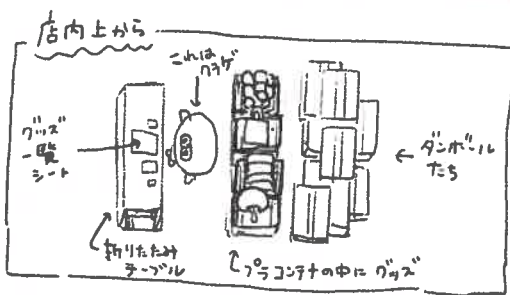 店内上から
これは
クラゲ
グッズ
一覧
シート
ダンボール
たち
折りたたみ
テーブル
プラコンテナの中に グッズ